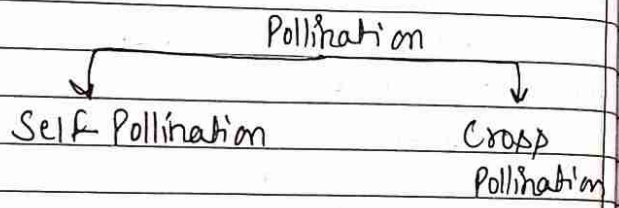 Pollination
Self Pollination
Cross
Pollination